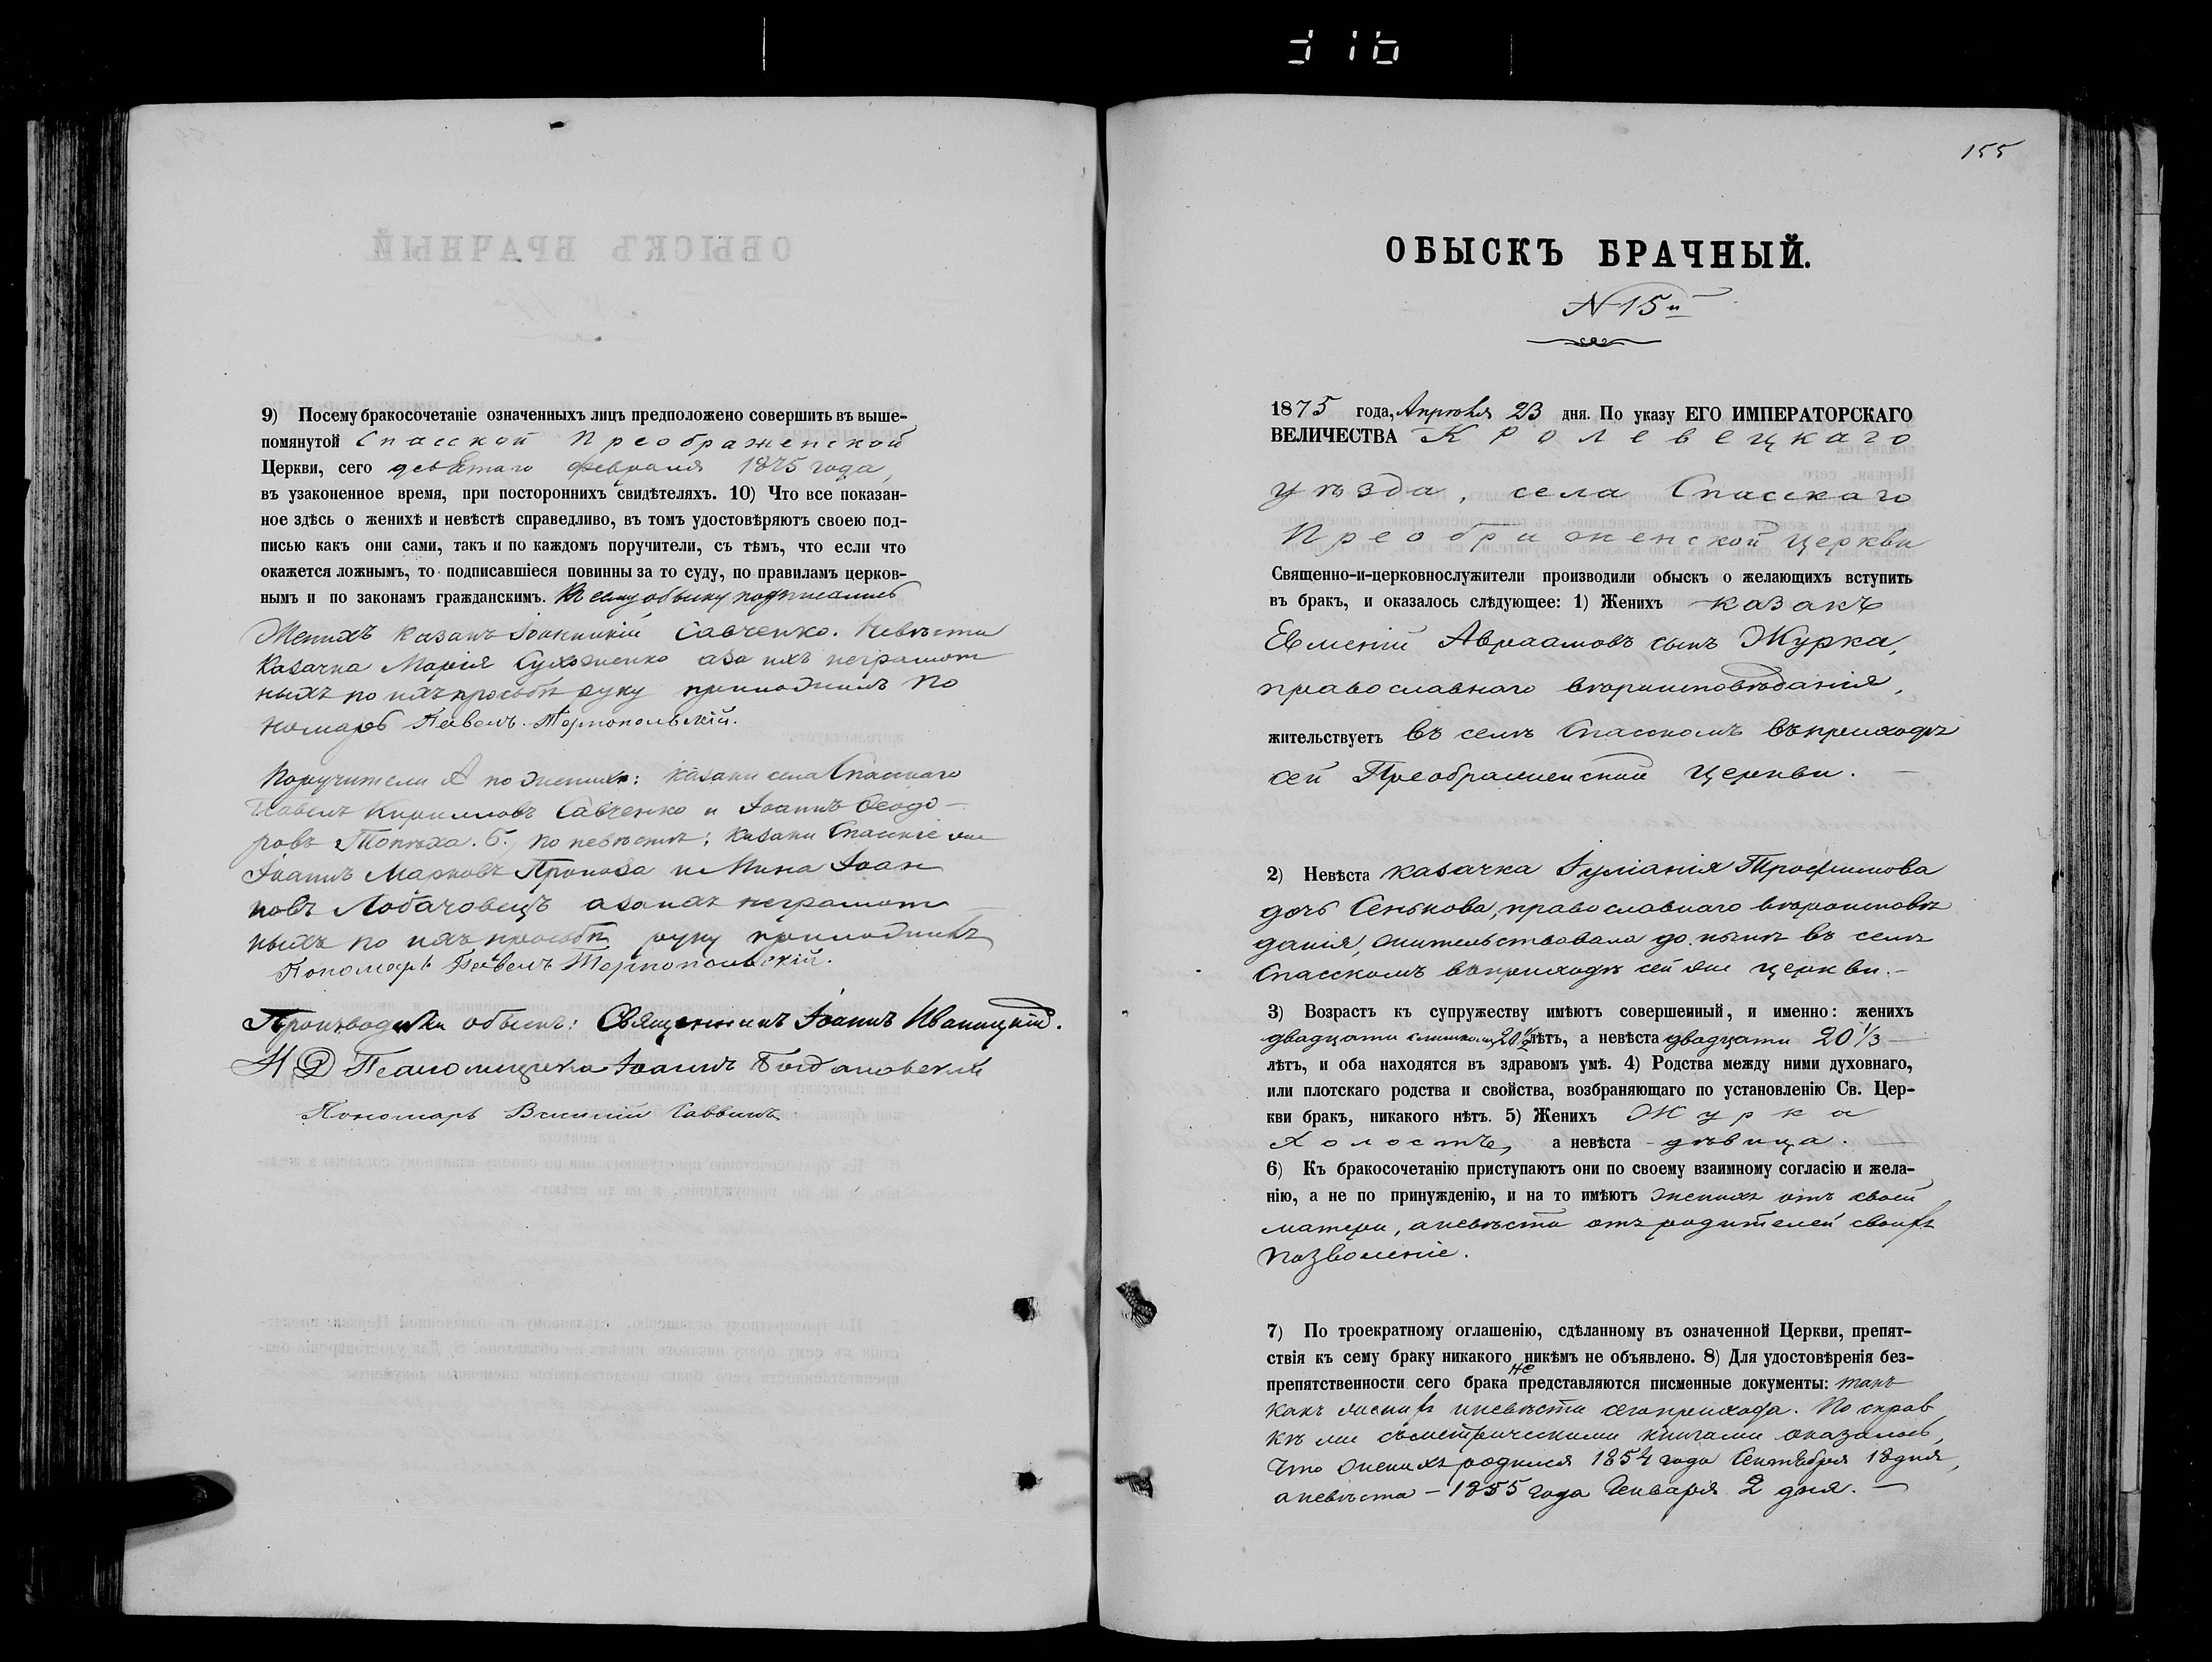 9) Посему бракосочетаніе означенныхъ лицъ предположено совершить въ выше-
помянутой Спасской Преображенской
Церкви, сего девятаго февраля 1875 года,
въ узаконенное время, при постороннихъ свидѣтеляхъ. 10) Что все показан-
ное здѣсь о женихѣ и невѣстѣ справедливо, въ томъ удостовѣряютъ своею под-
писью какъ они сами, такъ и по каждомъ поручители, съ тѣмъ, что если что
окажется ложнымъ, то подписавшіеся повинны за то суду, по правиламъ церков-
нымъ и по законамъ гражданскимъ. Къ сему обыску подписались
Женихъ казакъ Іоанникій Савченко. Невѣста
казачка Марія а за ихъ неграмот
ныхъ по ихъ просьбѣ руку приложилъ По
номарь Павелъ Тернопольскій.
Поручители А по женихѣ: казаки села Спасскаго
Павелъ Кирилловъ Савченко и Іоаннъ Ѳеодо-
ровъ Топѣха. б. по невѣстѣ: казаки Спасскіе же
Іоаннъ Марковъ и Мина Іоан
новъ Лобачовецъ а за ихъ неграмот
ныхъ по ихъ просьбѣ руку приложилъ
Пономарь Павелъ Тернопольскій.
Производили обыскъ: Священникъ Іоаннъ Иваницкій.
И Д Псаломщика Іоаннъ Богдановскій
Пономарь Василій Саввинъ
155
ОБЫСКЪ БРАЧНЫЙ.
N 15й
1875 года, Апрѣля 23 дня. По указу ЕГО ИМПЕРАТОРСКАГО
ВЕЛИЧЕСТВА Кролевецкаго
уѣзда, села Спасскаго
Преображенской церкви
Священно-и-церковнослужители производили обыскъ о желающихъ вступить
въ бракъ, и оказалось слѣдующее: 1) Женихъ казакъ
Евменій Авраамовъ сынъ Журка,
православнаго вѣроисповѣданія,
жительствуетъ въ селѣ Спасскомъ въ приходѣ
сей Преображенской церкви. —
2) Невѣста казачка Іуліанія Трофимова
дочь Сенькова, православнаго вѣроисповѣ
данія, жительствовала до нынѣ въ селѣ
Спасскомъ въ приходѣ сей же церкви. —
3) Возрастъ къ супружеству имѣютъ совершенный, и именно: женихъ
двадцати слишкомъ 20½ лѣтъ, а невѣста двадцати 20⅓ —
лѣтъ, и оба находятся въ здравомъ умѣ. 4) Родства между ними духовнаго,
или плотскаго родства и свойства, возбраняющаго по установленію Св. Цер-
кви бракъ, никакого нѣтъ. 5) Женихъ Журка
холостъ, а невѣста - дѣвица. —
6) Къ бракосочетанію приступаютъ они по своему взаимному согласію и жела-
нію, а не по принужденію, и на то имѣютъ женихъ отъ своей
матери, а невѣста отъ родителей своихъ
позволеніе.
7) По троекратному оглашенію, сдѣланному въ означенной Церкви, препят-
ствія къ сему браку никакого никѣмъ не объявлено. 8) Для удостовѣренія без-
препятственности сего брака не представляются писменные документы: такъ
какъ женихъ и невѣста сего прихода. По справ
кѣ же съ метрическими книгами оказалось,
что женихъ родился 1854 года Сентября 18 дня,
а невѣста — 1855 года Января 2 дня. —